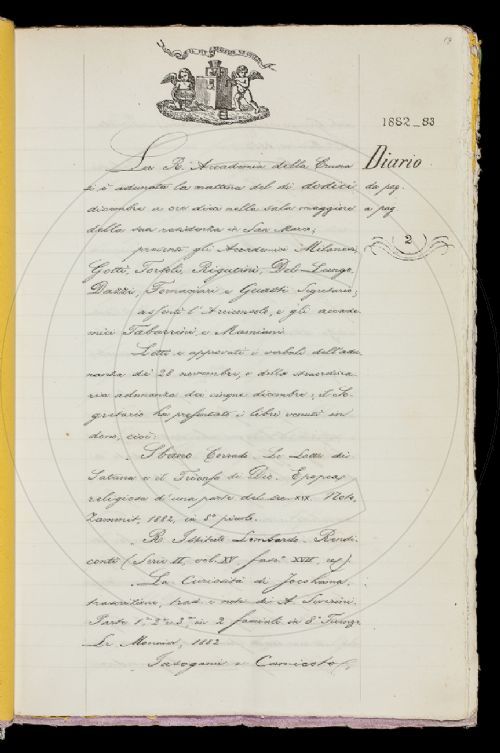 17
1882_83
Diario
da pag
a pag
2
La R. Accademia della Crusca
si è adunata la mattina del dì dodici
dicembre a ore dieci nella sala maggiore
della sua residenza in San Marco;
presenti gli Accademici Milanesi,
Gotti, Tortoli, Rigutini, Del Lungo,
Dazzi, Tomagiari e Guasti Segretario;
assenti l'Arciconsolo, e gli accade-
mici Tabarrini, e Mamiani.
Letti e approvati i verbali dell'adu-
nanza dei 28 novembre, e della straordina
ria adunanza dei cinque dicembre; il Se-
gretario ha presentato i libri venuti in
dono, cioè:
Sbano Corrado. Le Lotte di
Satana e il Trionfo di Dio. Epopea
religiosa d'una parte del sec. XIX. Noto,
Zammit, 1882, in 8° picolo.
R. Istituto Lombardo. Rendi-
conti (Serie II, vol. XV fasc. XVII,
La Curiosità di Jocohama,
trascrizione, trad. e note di A. Severini.
Parte 1ª 2ª e 3ª, in 2 fascicoli in 8° Firenze
Le Monnier, 1882
e